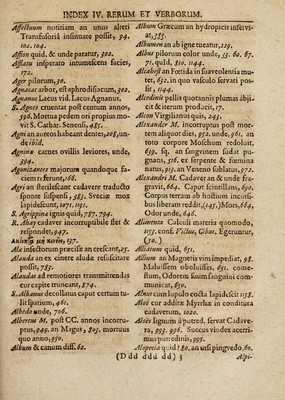 INDEX IV. RERUM ET VERBORUM.
Affectuum notitiam an unus alteri
Transfusoriâ insinuare possit, 94.
102. 104.
Affim quid, & unde paratur, 302.
Afflatu insperato intumescens facies,
172.
Ager pilorum, 30.
Agnacat arbor, est aphrodisiacum, 302.
Agnanus Lacus vid. Lacus Agnanus.
S. Agnes cruentat post centum annos,
596. Mortua pedem ori propius mo-
vit S. Cathar. Senensi, 485.
Agni an aureos habeant dentes, 283, un-
de ibid.
Agnina carnes ovillis leviores, unde,
394.
Agonizantes majorum quandoque fa-
ciem referunt, 166.
Agri an sterilescant cadavere traducto
sponte suspensi, 383. Sveciæ mox
lapidescunt, 1071.
S. Agrippina ignis quid, 787. 794.
S. Abay cadaver incorruptibile flet &
respondet, 947.
Ala insectorum præcisæ an crescant, 25.
Alauda an ex cinere aludæ resuscitare
possit, 783.
Alaudas ad remotiores transmittendas
cur capite truncant, 874.
S. Albanus decollatus caput certum tu-
lit spatium, 461.
Albedo unde, 706.
Albertus M. post CC. annos incorru-
ptus, 949. an Magus, 805. mortuus
quo anno, 950.
Album & canum diff. 62.
Album Græcum an hydropicis inservi-
at, 383.
Albumen an ab igne tueatur, 229.
Albus pilorum color unde, 53. 60. 67.
71. quid, 510. 1144.
Alcahest an Fœtida in suaveolentia mu-
tet, 632. in quo vasculo servari pos-
sit, 1144.
Alectionis pellis quotannis plumas abji-
cit & iterum producit, 17.
Alexander M. incorruptus post mor-
tem aliquot dies, 952. unde, 961. an
toto corpore Moschum redoluit,
639. sq. an sangvinem sudat pu-
gnans, 516. ex serpente & fœmina
natus, 913. an Veneno sublatus, 972.
Alexandri M. Cadaver an & unde fra-
gravit, 664. Caput scintillans, 690.
Corpus terram ab hostium incursi-
bus liberam reddit, (145.) Mors, 664.
Odor unde, 646.
Alimentum Calculi materia quomodo,
1153. conf. Victus, Cibus, Egerantur,
(50.)
Alliatum quid, 651.
Allium an Magnetis vim impediat, 98.
Malulissem obolevisse, 651. come-
stum, Odorem suum sangvini com-
municat, 650.
Alnus cum lupulo cocta lapidescit 1153.
Aloë cur additæ Myrrhæ in conditura
cadaverum, 1020.
Aloës lignum à putred. servat Cadave-
ra, 993. 996. Succus vividos acerri-
mus putredinis, 995.
Alopecia quid 80. an ursi pingvedo, 60.
(D dd ddd dd) 3
Alpi-